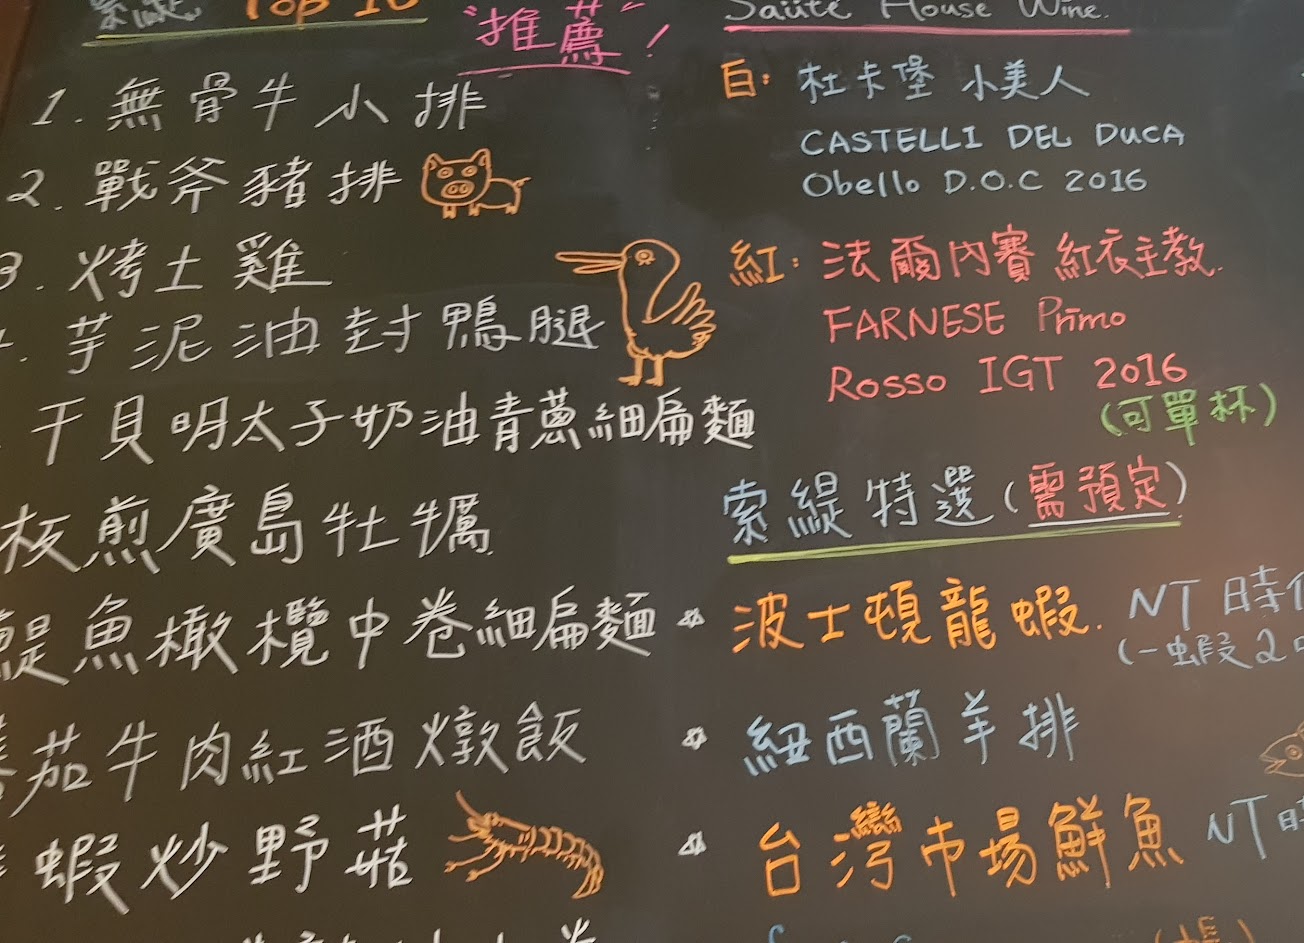 索緹 Top 10
"推薦"!
1. 無骨牛小排
2. 戰斧豬排
3. 烤土雞
芋泥油封鴨腿
干貝明太子奶油青蔥細扁麵
板煎廣島牡蠣
鯷魚橄欖中卷細扁麵
番茄牛肉紅酒燉飯
蝦炒野菇
Saute House Wine.
白: 杜卡堡 小美人
CASTELLI DEL DUCA
Obello D.O.C 2016
紅: 法爾內賽 紅衣主教.
FARNESE Primo
Rosso IGT 2016
(可單杯)
索緹特選(需預定)
波士頓龍蝦. NT 時
(一蝦2
紐西蘭羊排
台灣市場鮮魚 NT 時